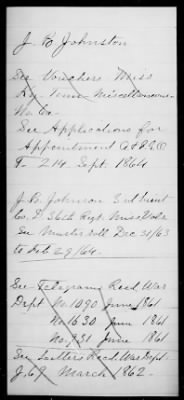 J. B. Johnston
See Vouchers Miss
Ky. Tenn. Miscellaneous
No. Co.
See Applications for
Appointment Q & P. A. O
T- 214. Sept. 1864
J. B. Johnson 3rd Lieut
Co. D. 36th Regt. Miss Vols
See Muster roll Dec 31/63
to Feb 29/64.
See Telegrams Recd. War
Dept No. 1090 June 1861
No. 1630 June 1861
No. 931 June 1861
See Letters Recd. War Dept.
J. 69 March 1862.